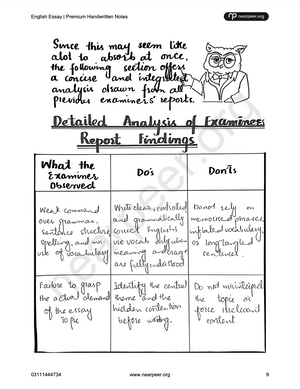 English Essay | Premium Handwritten Notes
nearpeer.org
Since this may seem like
alot to absorb at once,
the following section offers
a concise and integrated
analysis drawn from all
previous examiners' reports.
Detailed Analysis of Examiners
Report Findings
What the
Examiner
Observed
Do's
Don'ts
Weak command
over grammar,
sentence structure
spelling, and mis
use of vocabulary
Write clear, controlled
and grammatically
correct English;
use vocab only when
meaning and usage
are fully understood
Do not rely on
memorised phrases,
inflated vocabulary
or long tangled
sentences.
Failure to grasp
the actual demand
of the essay
topic
Identify the central
theme and the
hidden contention
before writing.
Do not misinterpret
the topic or
force irrelevant
content
nearpeer.org
03111444734
www.nearpeer.org
9